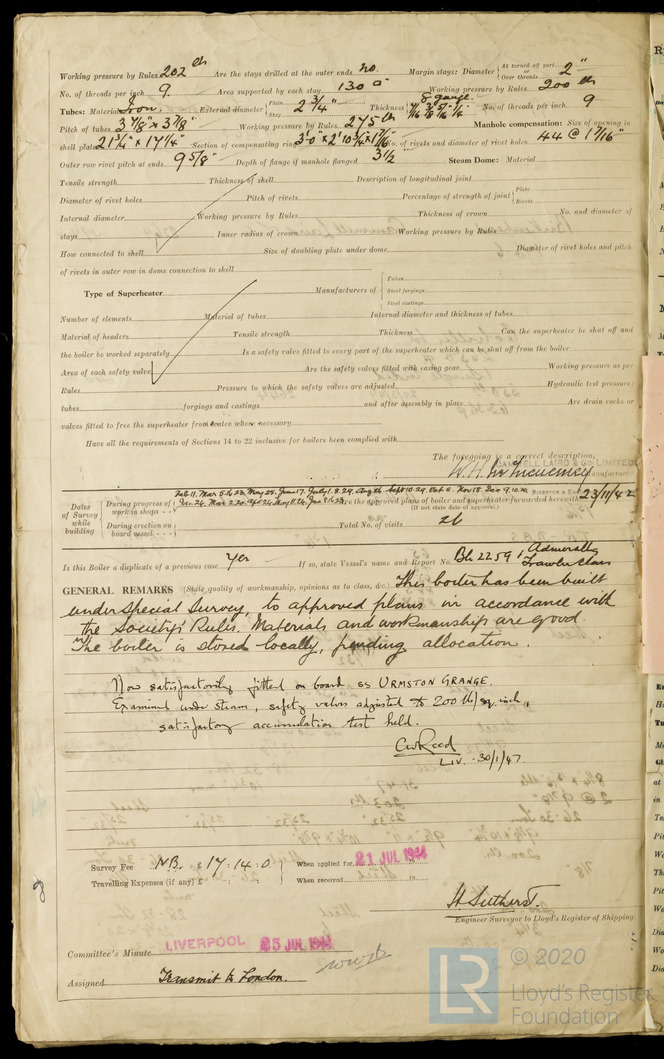 Working pressure by Rules 202 lb Are the stays drilled at the outer ends No. Margin stays: Diameter { At turned off part, or Over threads 2"
No. of threads per inch 9 Area supported by each stay 130 □" Working pressure by Rules 200 lb
Tubes: Material Iron. External diameter { Plain Stay 2 3/4" Thickness { 8 gauge. No. of threads per inch. 9
Pitch of tubes 3 7/8" x 3 7/8" Working pressure by Rules 275 lb Manhole compensation: Size of opening in
shell plate 21 3/4" x 17 1/4" Section of compensating ring No. of rivets and diameter of rivet holes 44 @ 1 7/16"
Outer row rivet pitch at ends 9 5/8" Depth of flange if manhole flanged 3 1/2" Steam Dome: Material
Tensile strength Thickness of shell Description of longitudinal joint
Diameter of rivet holes Pitch of rivets Percentage of strength of joint { Plate Rivets
Internal diameter Working pressure by Rules Thickness of crown No. and diameter of
stays Inner radius of crown Working pressure by Rules
How connected to shell Size of doubling plate under dome Diameter of rivet holes and pitch
of rivets in outer row in dome connection to shell
Type of Superheater Manufacturers of { Tubes Steel forgings Steel castings
Number of elements Material of tubes Internal diameter and thickness of tubes
Material of headers Tensile strength Thickness Can the superheater be shut off and
the boiler be worked separately Is a safety valve fitted to every part of the superheater which can be shut off from the boiler
Area of each safety valve Are the safety valves fitted with easing gear Working pressure as per
Rules Pressure to which the safety valves are adjusted Hydraulic test pressure:
tubes forgings and castings and after assembly in place Are drain cocks or
valves fitted to free the superheater from water where necessary
Have all the requirements of Sections 14 to 22 inclusive for boilers been complied with
The foregoing is a correct description,
CAMMELL LAIRD & CO LIMITED
Manufacturer.
23/11/42
Dates of Survey while building
During progress of work in shops - -
Are the approved plans of boiler and superheater forwarded herewith
(If not state date of approval.)
During erection on board vessel - - -
Total No. of visits 26
Is this Boiler a duplicate of a previous case Yes If so, state Vessel's name and Report No. Bh 2259, Admiralty Trawler class
GENERAL REMARKS (State quality of workmanship, opinions as to class, &c.) This boiler has been built
under Special Survey, to approved plans in accordance with
the Society's Rules. Materials and workmanship are good.
The boiler is stored locally, pending allocation.
Now satisfactorily fitted on board ss URMSTON GRANGE.
Examined under steam, safety valves adjusted to 200 lb/sq. inch,
satisfactory accumulation test held.
CW Reed
LIV. 30/1/47
Survey Fee NB. £ 17 : 14 : 0. When applied for, 21 JUL 1944
Travelling Expenses (if any) £ : : When received
H. Sutherst.
Engineer Surveyor to Lloyd's Register of Shipping.
Committee's Minute LIVERPOOL 25 JUL 1944
Assigned Transmit to London.
LR © 2020
Lloyd's Register
Foundation